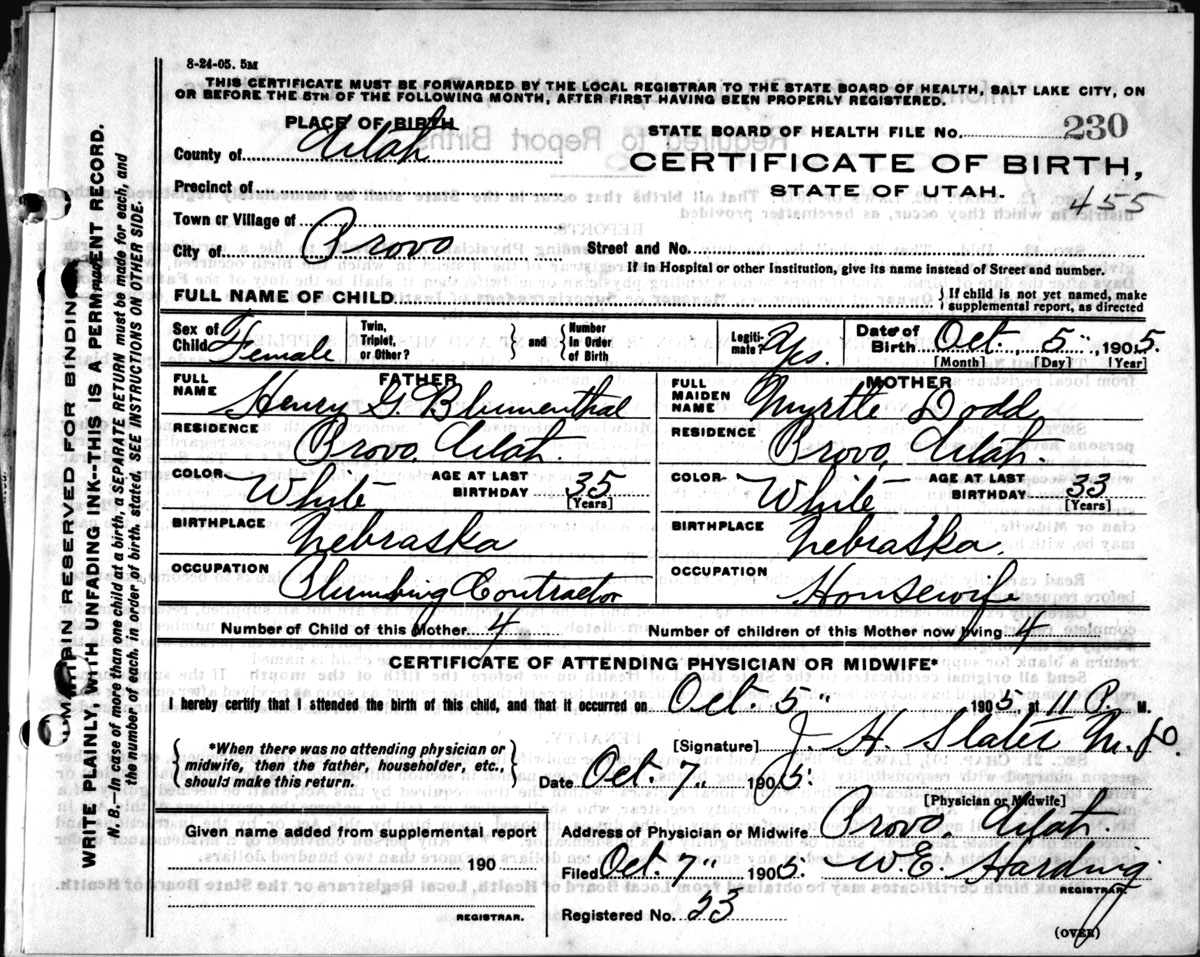 8-24-05. 5M
THIS CERTIFICATE MUST BE FORWARDED BY THE LOCAL REGISTRAR TO THE STATE BOARD OF HEALTH, SALT LAKE CITY, ON
OR BEFORE THE 5TH OF THE FOLLOWING MONTH, AFTER FIRST HAVING BEEN PROPERLY REGISTERED.
PLACE OF BIRTH
STATE BOARD OF HEALTH FILE No. 230
County of Utah
CERTIFICATE OF BIRTH,
STATE OF UTAH.
455
Precinct of
Town or Village of
City of Provo Street and No.
If in Hospital or other Institution, give its name instead of Street and number.
FULL NAME OF CHILD. } If child is not yet named, make supplemental report, as directed
Sex of Child Female Twin, Triplet, or Other? } and { Number In Order of Birth Legiti- mate? Yes. Date of Birth Oct. 5", 1905.
[Month] [Day] [Year]
FATHER MOTHER
FULL NAME Henry G. Blumenthal FULL MAIDEN NAME Myrtle Dodd
RESIDENCE Provo, Utah. RESIDENCE Provo, Utah.
COLOR White AGE AT LAST BIRTHDAY 35 [Years] COLOR White AGE AT LAST BIRTHDAY 33 [Years]
BIRTHPLACE Nebraska BIRTHPLACE Nebraska.
OCCUPATION Plumbing Contractor OCCUPATION Housewife
Number of Child of this Mother 4 Number of children of this Mother now living 4
CERTIFICATE OF ATTENDING PHYSICIAN OR MIDWIFE*
I hereby certify that I attended the birth of this child, and that it occurred on Oct. 5" 1905, at 11 P. M.
{ *When there was no attending physician or midwife, then the father, householder, etc., should make this return. }
[Signature] J. H. Slater M.D.
Date Oct. 7" 1905.
[Physician or Midwife]
Given name added from supplemental report
Address of Physician or Midwife Provo, Utah.
190
Filed Oct. 7" 1905. W. E. Harding
REGISTRAR.
REGISTRAR.
Registered No. 23
(OVER)
MARGIN RESERVED FOR BINDING
WRITE PLAINLY, WITH UNFADING INK--THIS IS A PERMANENT RECORD.
N. B.--In case of more than one child at a birth, a SEPARATE RETURN must be made for each, and
the number of each, in order of birth, stated. SEE INSTRUCTIONS ON OTHER SIDE.